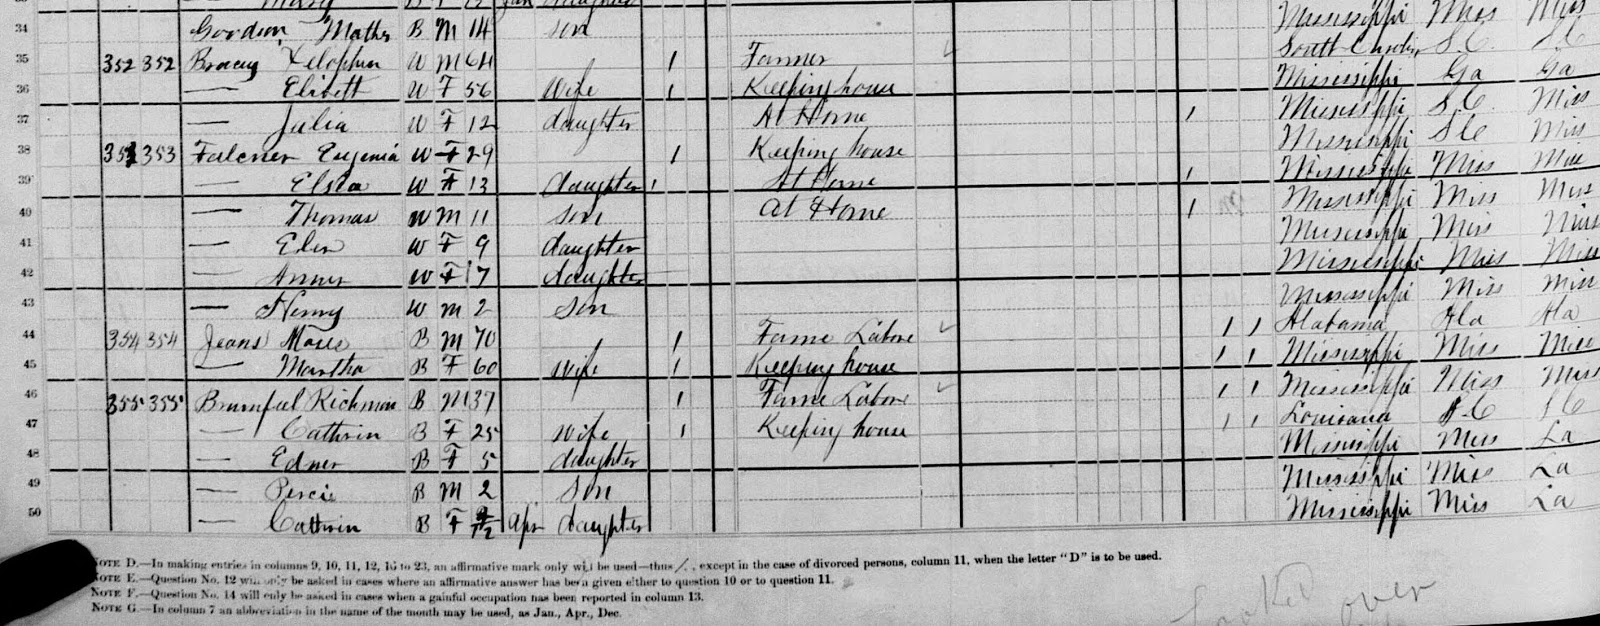 Mary B F 13 Jan daughter
34 Goodson Mather B M 14 son Mississippi Miss Miss
35 352 352 Bracey W M 64 1 Farmer South Carolin S.C. S.C
36 — Elisett W F 56 wife 1 Keeping house Mississippi Ga Ga
37 — Julia W F 12 daughter At Home 1 Mississippi S.C. Miss
38 353 353 Falcner Eugenia W F 29 1 Keeping house Mississippi S C Miss
39 — W F 13 daughter 1 At Home 1 Mississippi Miss Miss
40 — Thomas W M 11 son At Home 1 Mississippi Miss Miss
41 — Elen W F 9 daughter Mississippi Miss Miss
42 — W F 7 daughter Mississippi Miss Miss
43 — Henry W M 2 son Mississippi Miss Miss
44 354 354 Jeans B M 70 1 Farme Labore 1 1 Alabama Ala Ala
45 — Martha B F 60 wife 1 Keeping house 1 1 Mississippi Miss Miss
46 355 355 Brumfiel Richmon B M 37 1 Farme Labore 1 1 Mississippi Miss Miss
47 — Cathrin B F 25 wife 1 Keeping house 1 1 Louisiana S.C S C
48 — Edner B F 5 daughter Mississippi Miss La
49 — Percie B M 2 son Mississippi Miss La
50 — Cathrin B F 2/12 Apr daughter Mississippi Miss La
NOTE D.—In making entries in columns 9, 10, 11, 12, 16 to 23, an affirmative mark only will be used—thus /, except in the case of divorced persons, column 11, when the letter "D" is to be used.
NOTE E.—Question No. 12 will only be asked in cases where an affirmative answer has been given either to question 10 or to question 11.
NOTE F.—Question No. 14 will only be asked in cases when a gainful occupation has been reported in column 13.
NOTE G.—In column 7 an abbreviation in the name of the month may be used, as Jan., Apr., Dec.
Looked over